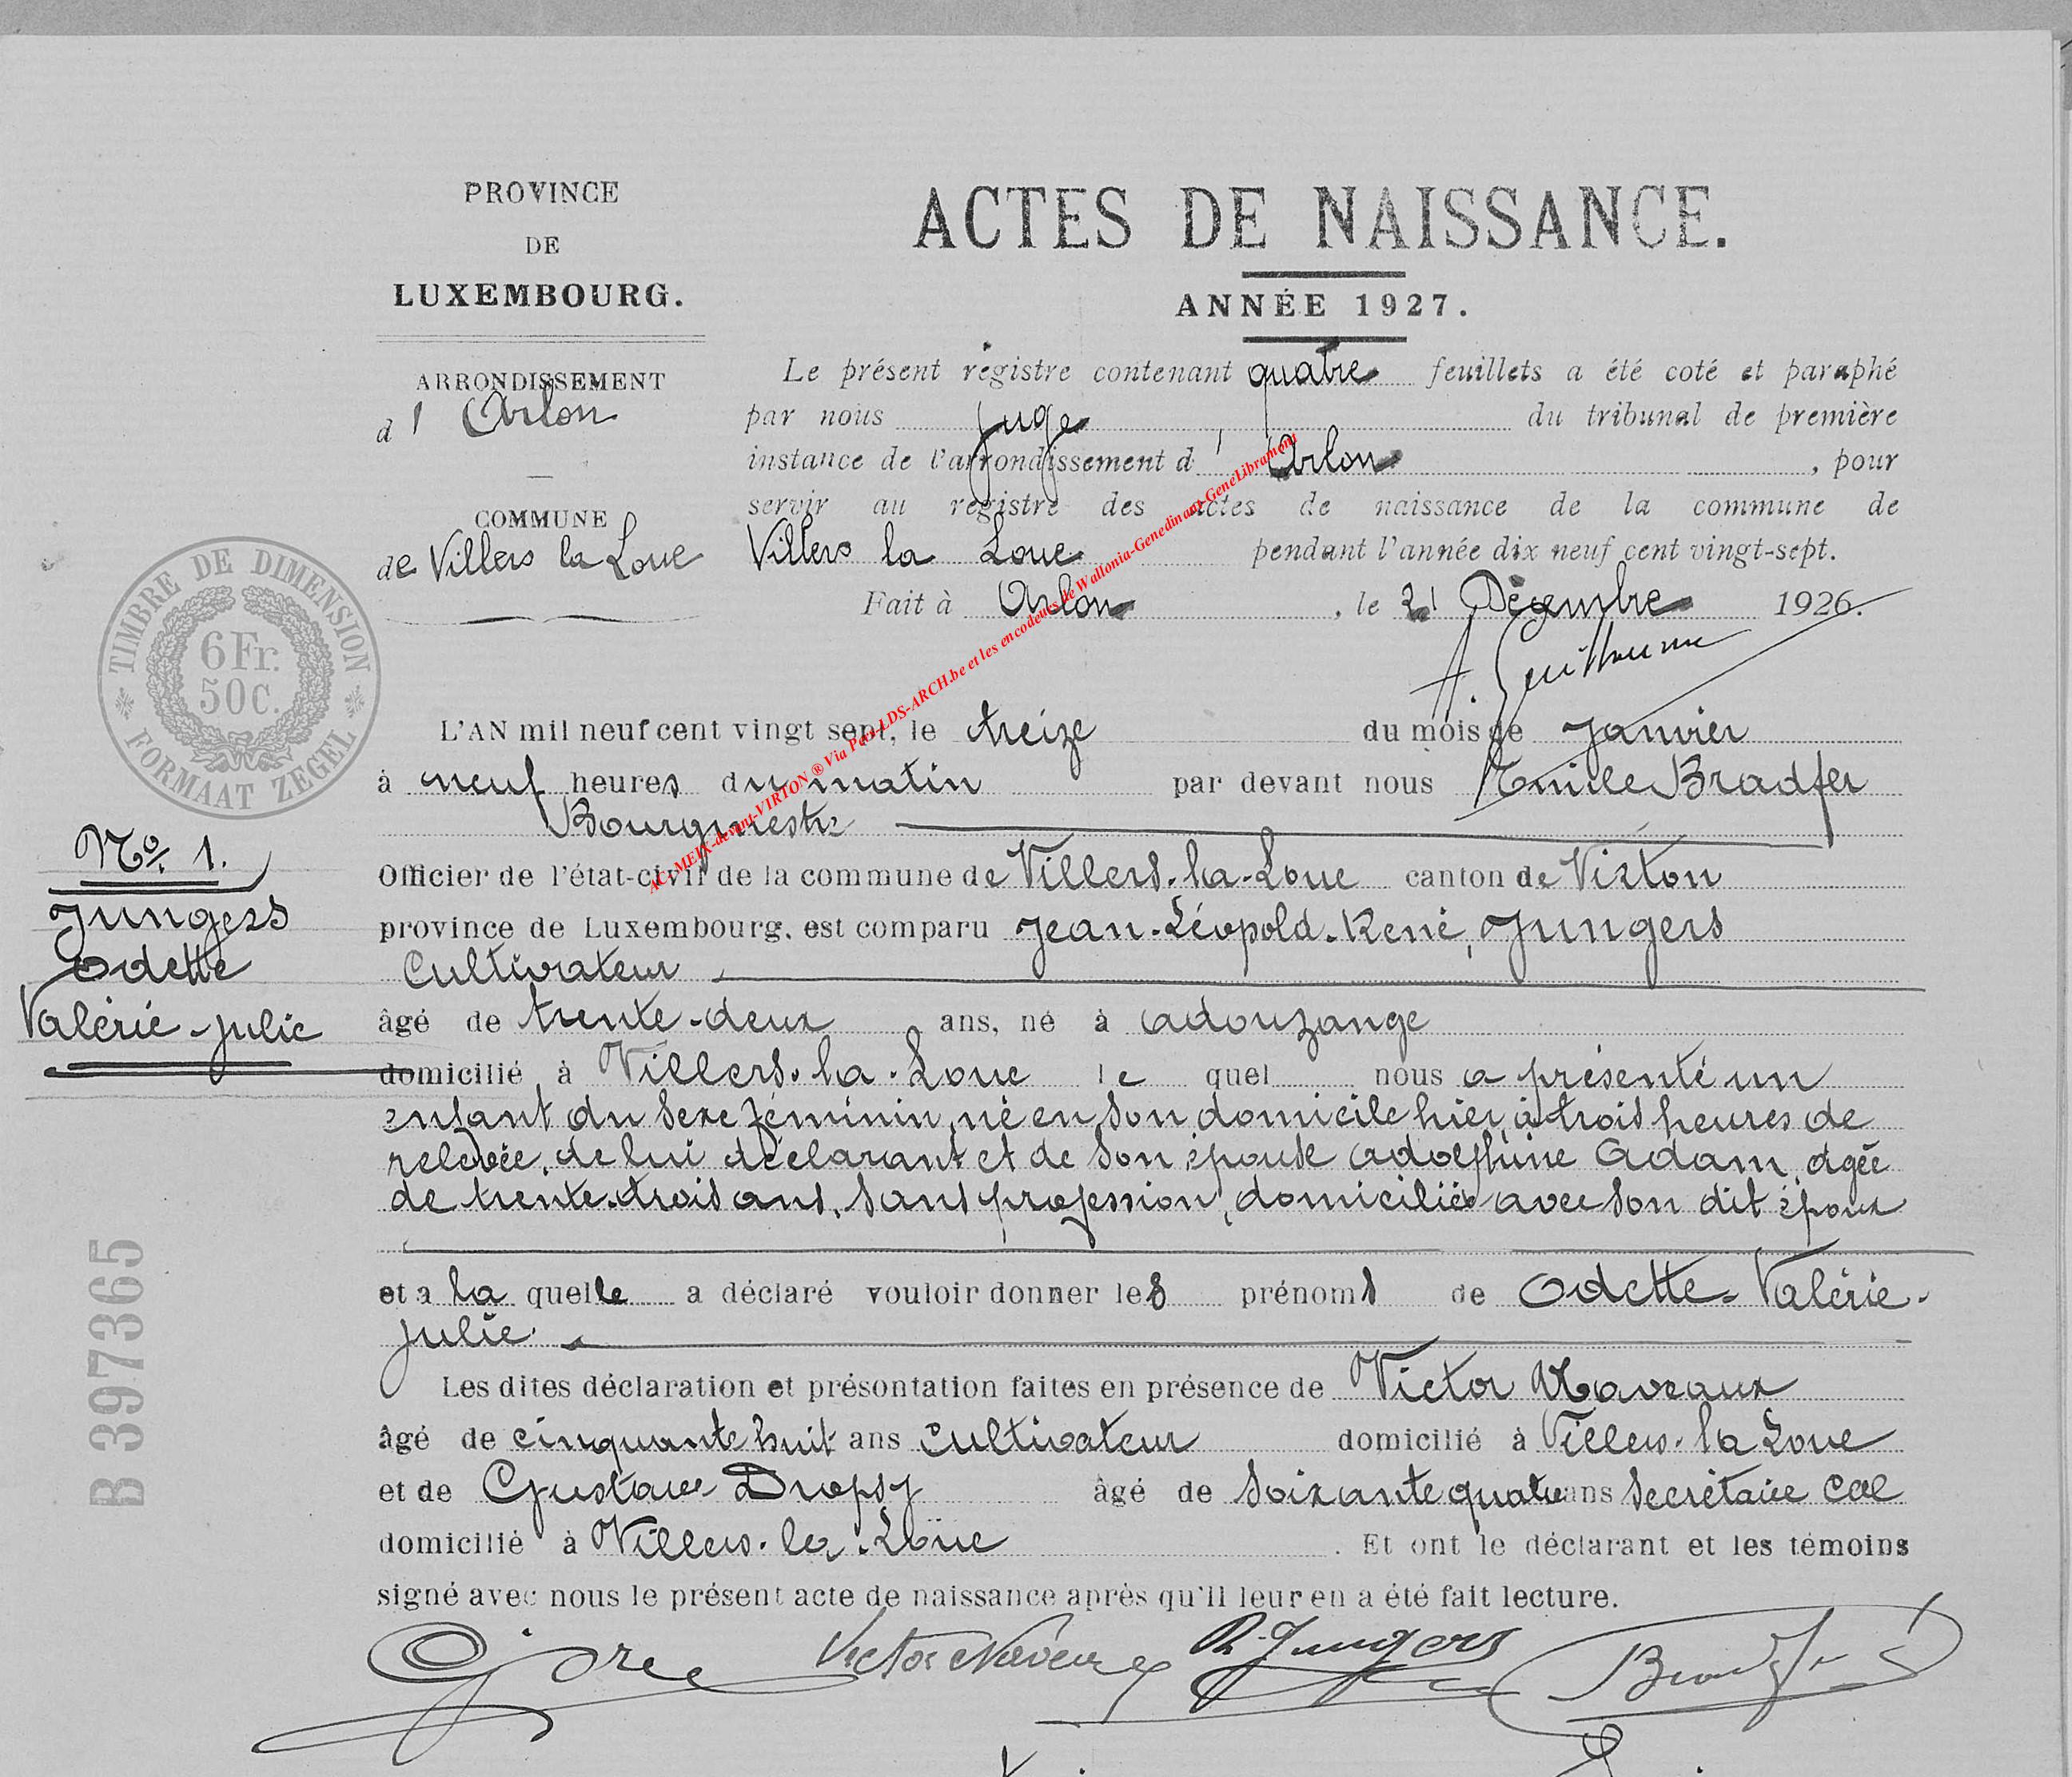 PROVINCE
DE
LUXEMBOURG.
ARRONDISSEMENT
d' Arlon
COMMUNE
de Villers la Loue
ACTES DE NAISSANCE.
ANNÉE 1927.
Le présent registre contenant quatre feuillets a été coté et paraphé
par nous juge du tribunal de première
instance de l'arrondissement d' Arlon, pour
servir au registre des actes de naissance de la commune de
Villers la Loue pendant l'année dix neuf cent vingt-sept.
Fait à Arlon, le 21 Décembre 1926.
A. Guillaume
TIMBRE DE DIMENSION
6 Fr.
50 c.
FORMAAT ZEGEL
AC-MEIX-devant-VIRTON ® Via Part LDS-ARCH.be et les encodeurs de Wallonia-Genedinant-GeneLibramont
L'AN mil neuf cent vingt sept, le treize du mois de Janvier
à neuf heures du matin par devant nous Emile Bradfer
Bourgmestre
No. 1.
Jungers
Odette
Valérie-Julie
Officier de l'état-civil de la commune de Villers-la-Loue canton de Virton
province de Luxembourg. est comparu Jean-Léopold-René, Jungers
Cultivateur
âgé de trente-deux ans, né à adouzange
domicilié à Villers-la-Loue le quel nous a présenté un
enfant du sexe féminin, né en son domicile hier à trois heures de
relevée, de lui déclarant et de son épouse Adolphine Adam, agée
de trente-trois ans, sans profession, domiciliée avec son dit époux
et a la quelle a déclaré vouloir donner les prénoms de Odette-Valérie-
Julie.
Les dites déclaration et présontation faites en présence de Victor Naveaux
âgé de cinquante huit ans cultivateur domicilié à Villers-la Loue
et de Gustave Dropsy âgé de soixante quatre ans secrétaire cal
domicilié à Villers-la-Loue. Et ont le déclarant et les témoins
signé avec nous le présent acte de naissance après qu'il leur en a été fait lecture.
Victor Naveaux R. Jungers Bradfer
B 397365